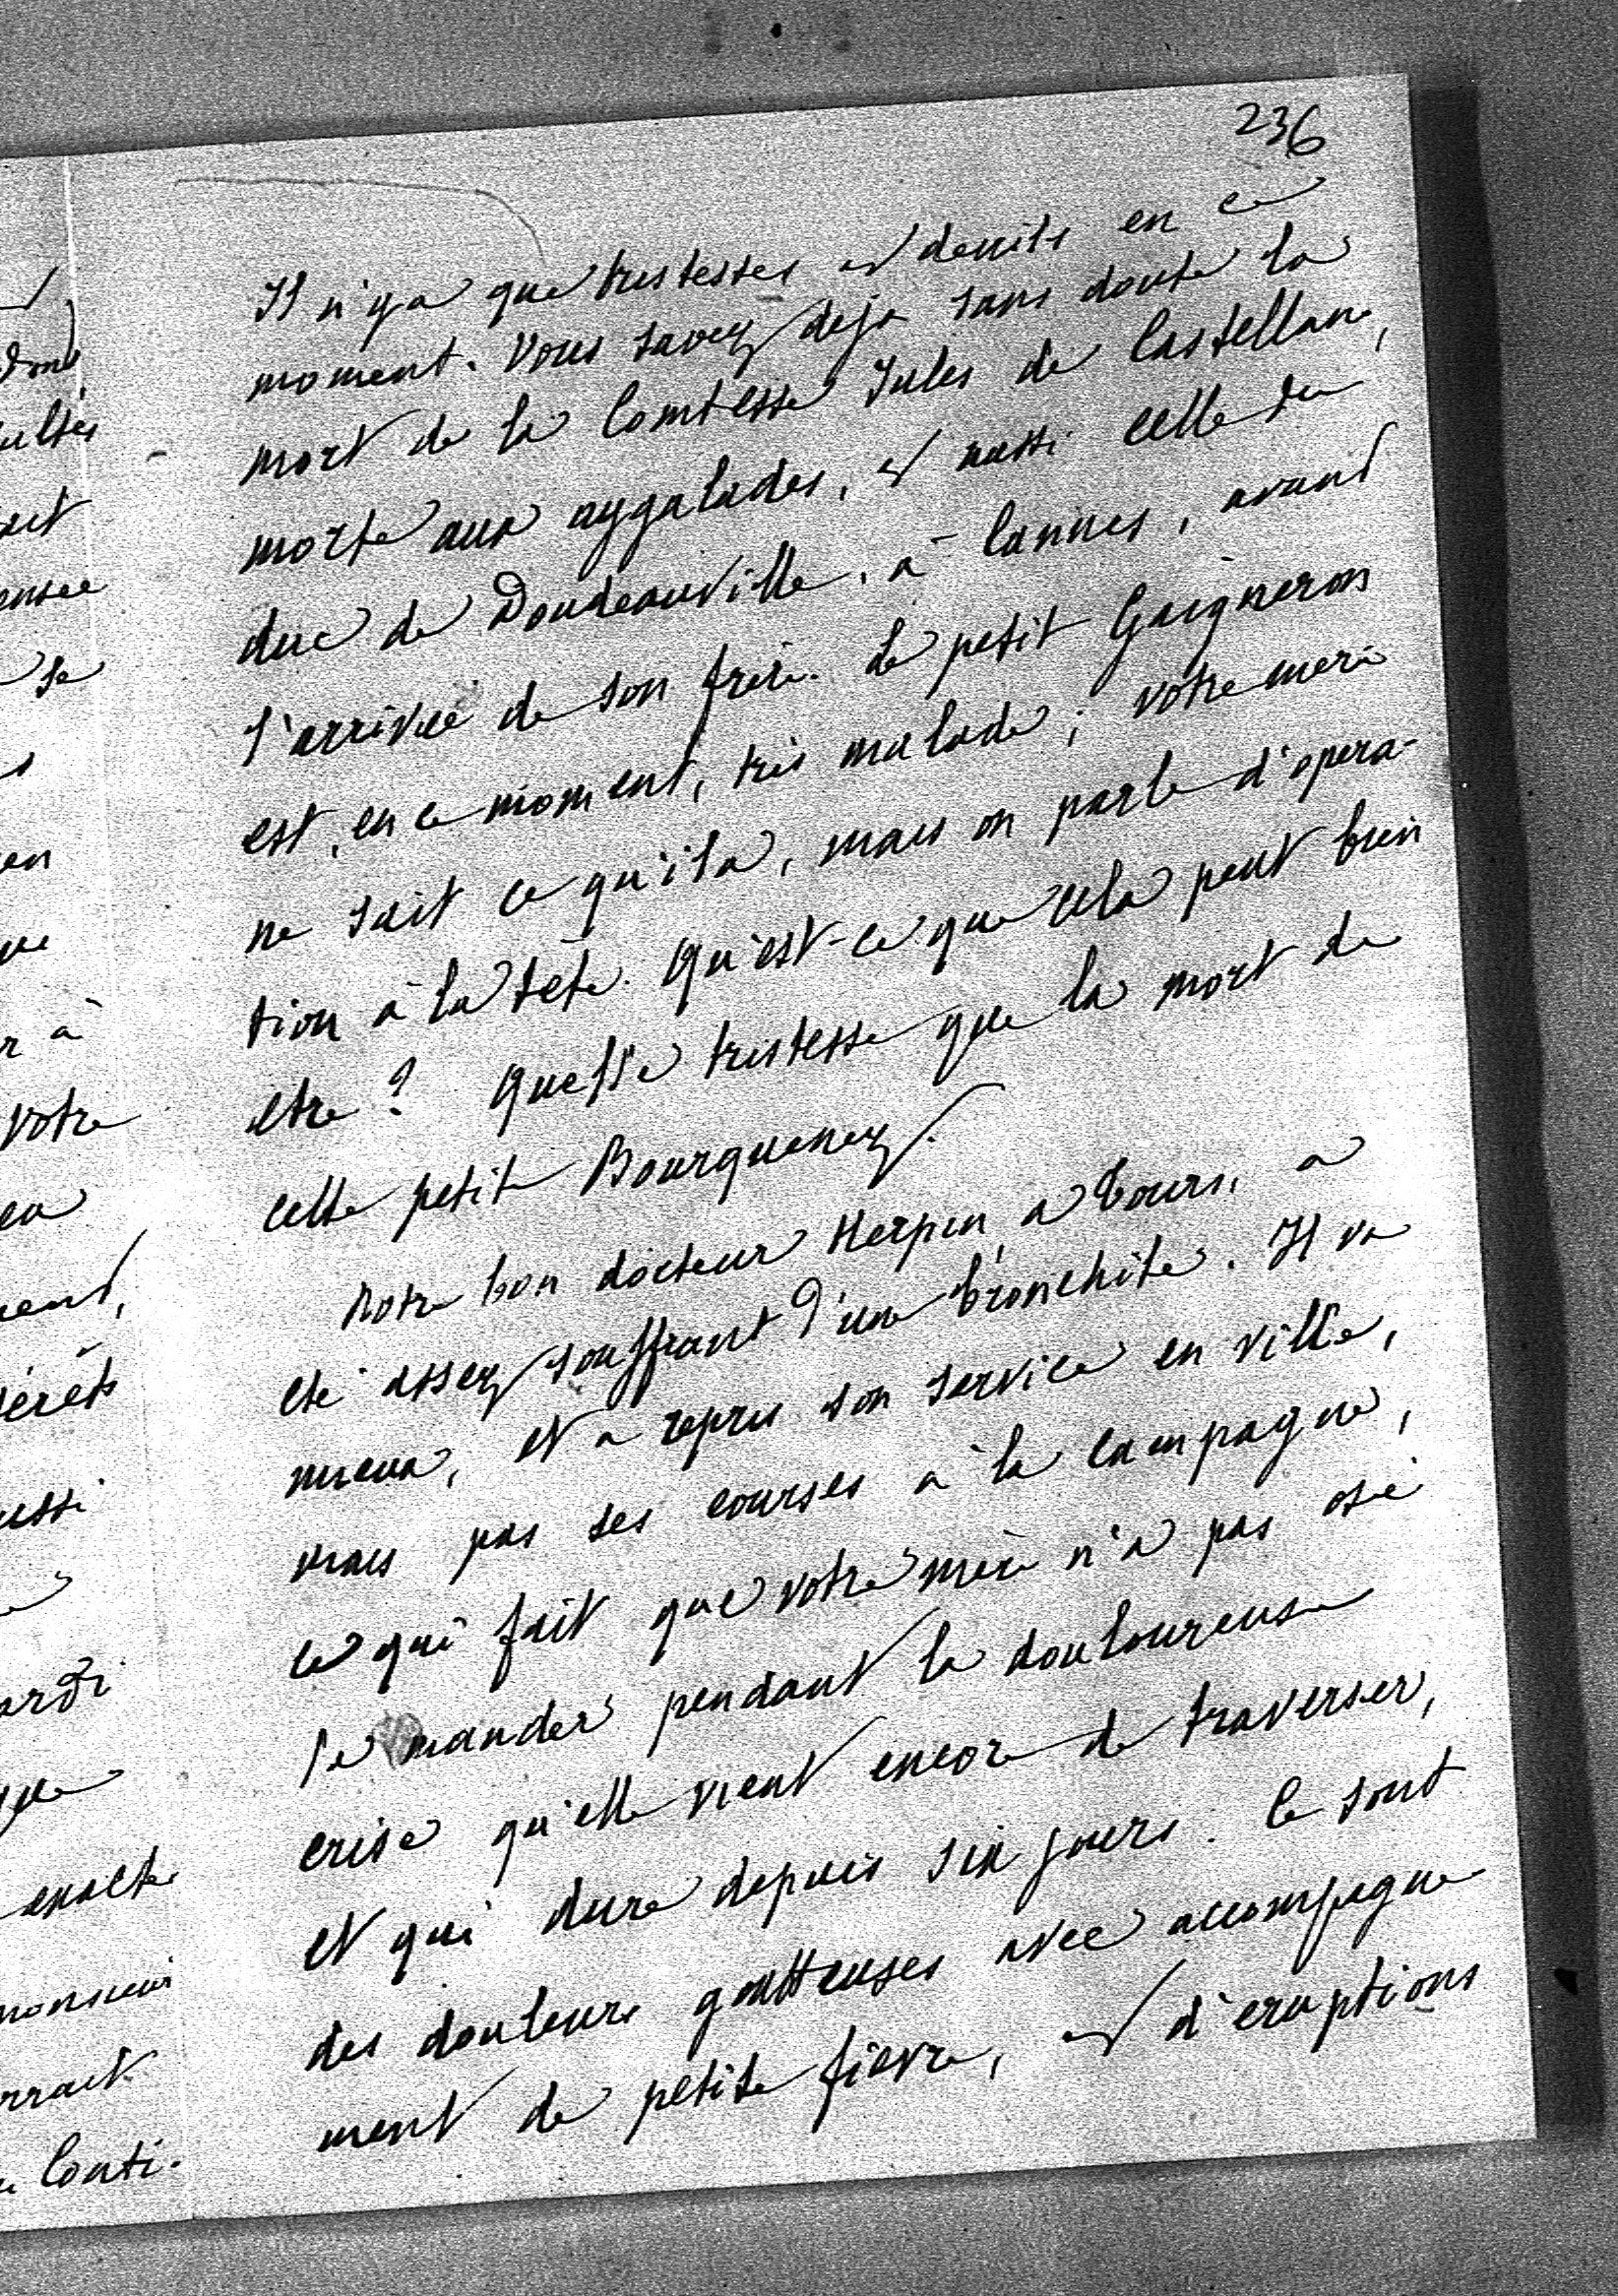 236
Il n'y a que tristesses et deuils en ce
moment. Vous savez deja sans doute la
mort de la Comtesse Jules de Castellane,
morte aux aygalades, et aussi celle du
duc de Doudeauville, à Cannes, avant
l'arrivée de son frère. Le petit Gaigneron
est, en ce moment, très malade ; votre mere
ne sait ce qu'il a, mais on parle d'opera-
tion à la tête. Qu'est-ce que cela peut bien
etre ? Quelle tristesse que la mort de
cette petite Bourqueney.
Notre bon docteur Herpin, a Tours, a
été assez souffrant d'une bronchite. Il va
mieux, et a repris son service en ville,
mais pas ses courses à la campagne,
ce qui fait que votre mère n'a pas osé
le mander pendant la douloureuse
crise qu'elle vient encore de traverser,
et qui dure depuis six jours. Ce sont
des douleurs goutteuses avec accompagne
ment de petite fièvre, et d'eruptions
ultés
ensée
se
en
à
votre
érêts
ussi
ardi
exacte
monsieur
rrait
Conti.